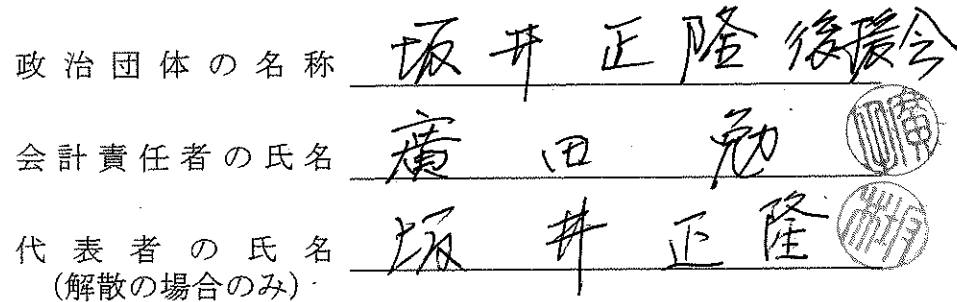 政治団体の名称 坂井正隆後援会
会計責任者の氏名 廣田勉
代表者の氏名 坂井正隆
(解散の場合のみ)